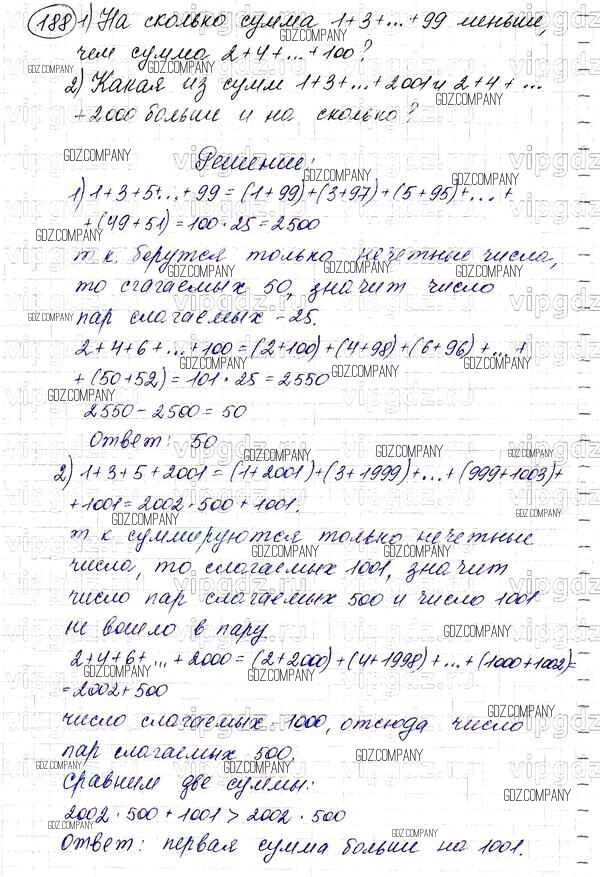 188 1) На сколько сумма 1+3+...+99 меньше,
чем сумма 2+4+...+100?
2) Какая из сумм 1+3+...+2001 и 2+4+...
+2000 больше и на сколько?
Решение:
1) 1+3+5+...+99 = (1+99)+(3+97)+(5+95)+...+
+(49+51) = 100·25 = 2500
т.к. берутся только нечетные числа,
то слагаемых 50, значит число
пар слагаемых -25.
2+4+6+...+100 = (2+100)+(4+98)+(6+96)+...+
+(50+52) = 101·25 = 2550
2550-2500 = 50
Ответ: 50
2) 1+3+5+2001 = (1+2001)+(3+1999)+...+(999+1003)+
+1001 = 2002·500+1001.
т к суммируются только нечетные
числа, то слагаемых 1001, значит
число пар слагаемых 500 и число 1001
не вошло в пару
2+4+6+...+2000 = (2+2000)+(4+1998)+...+(1000+1002)=
=2002+500
число слагаемых -1000, отсюда число
пар слагаемых 500.
сравним две суммы:
2002·500+1001 > 2002·500
Ответ: первая сумма больше на 1001.